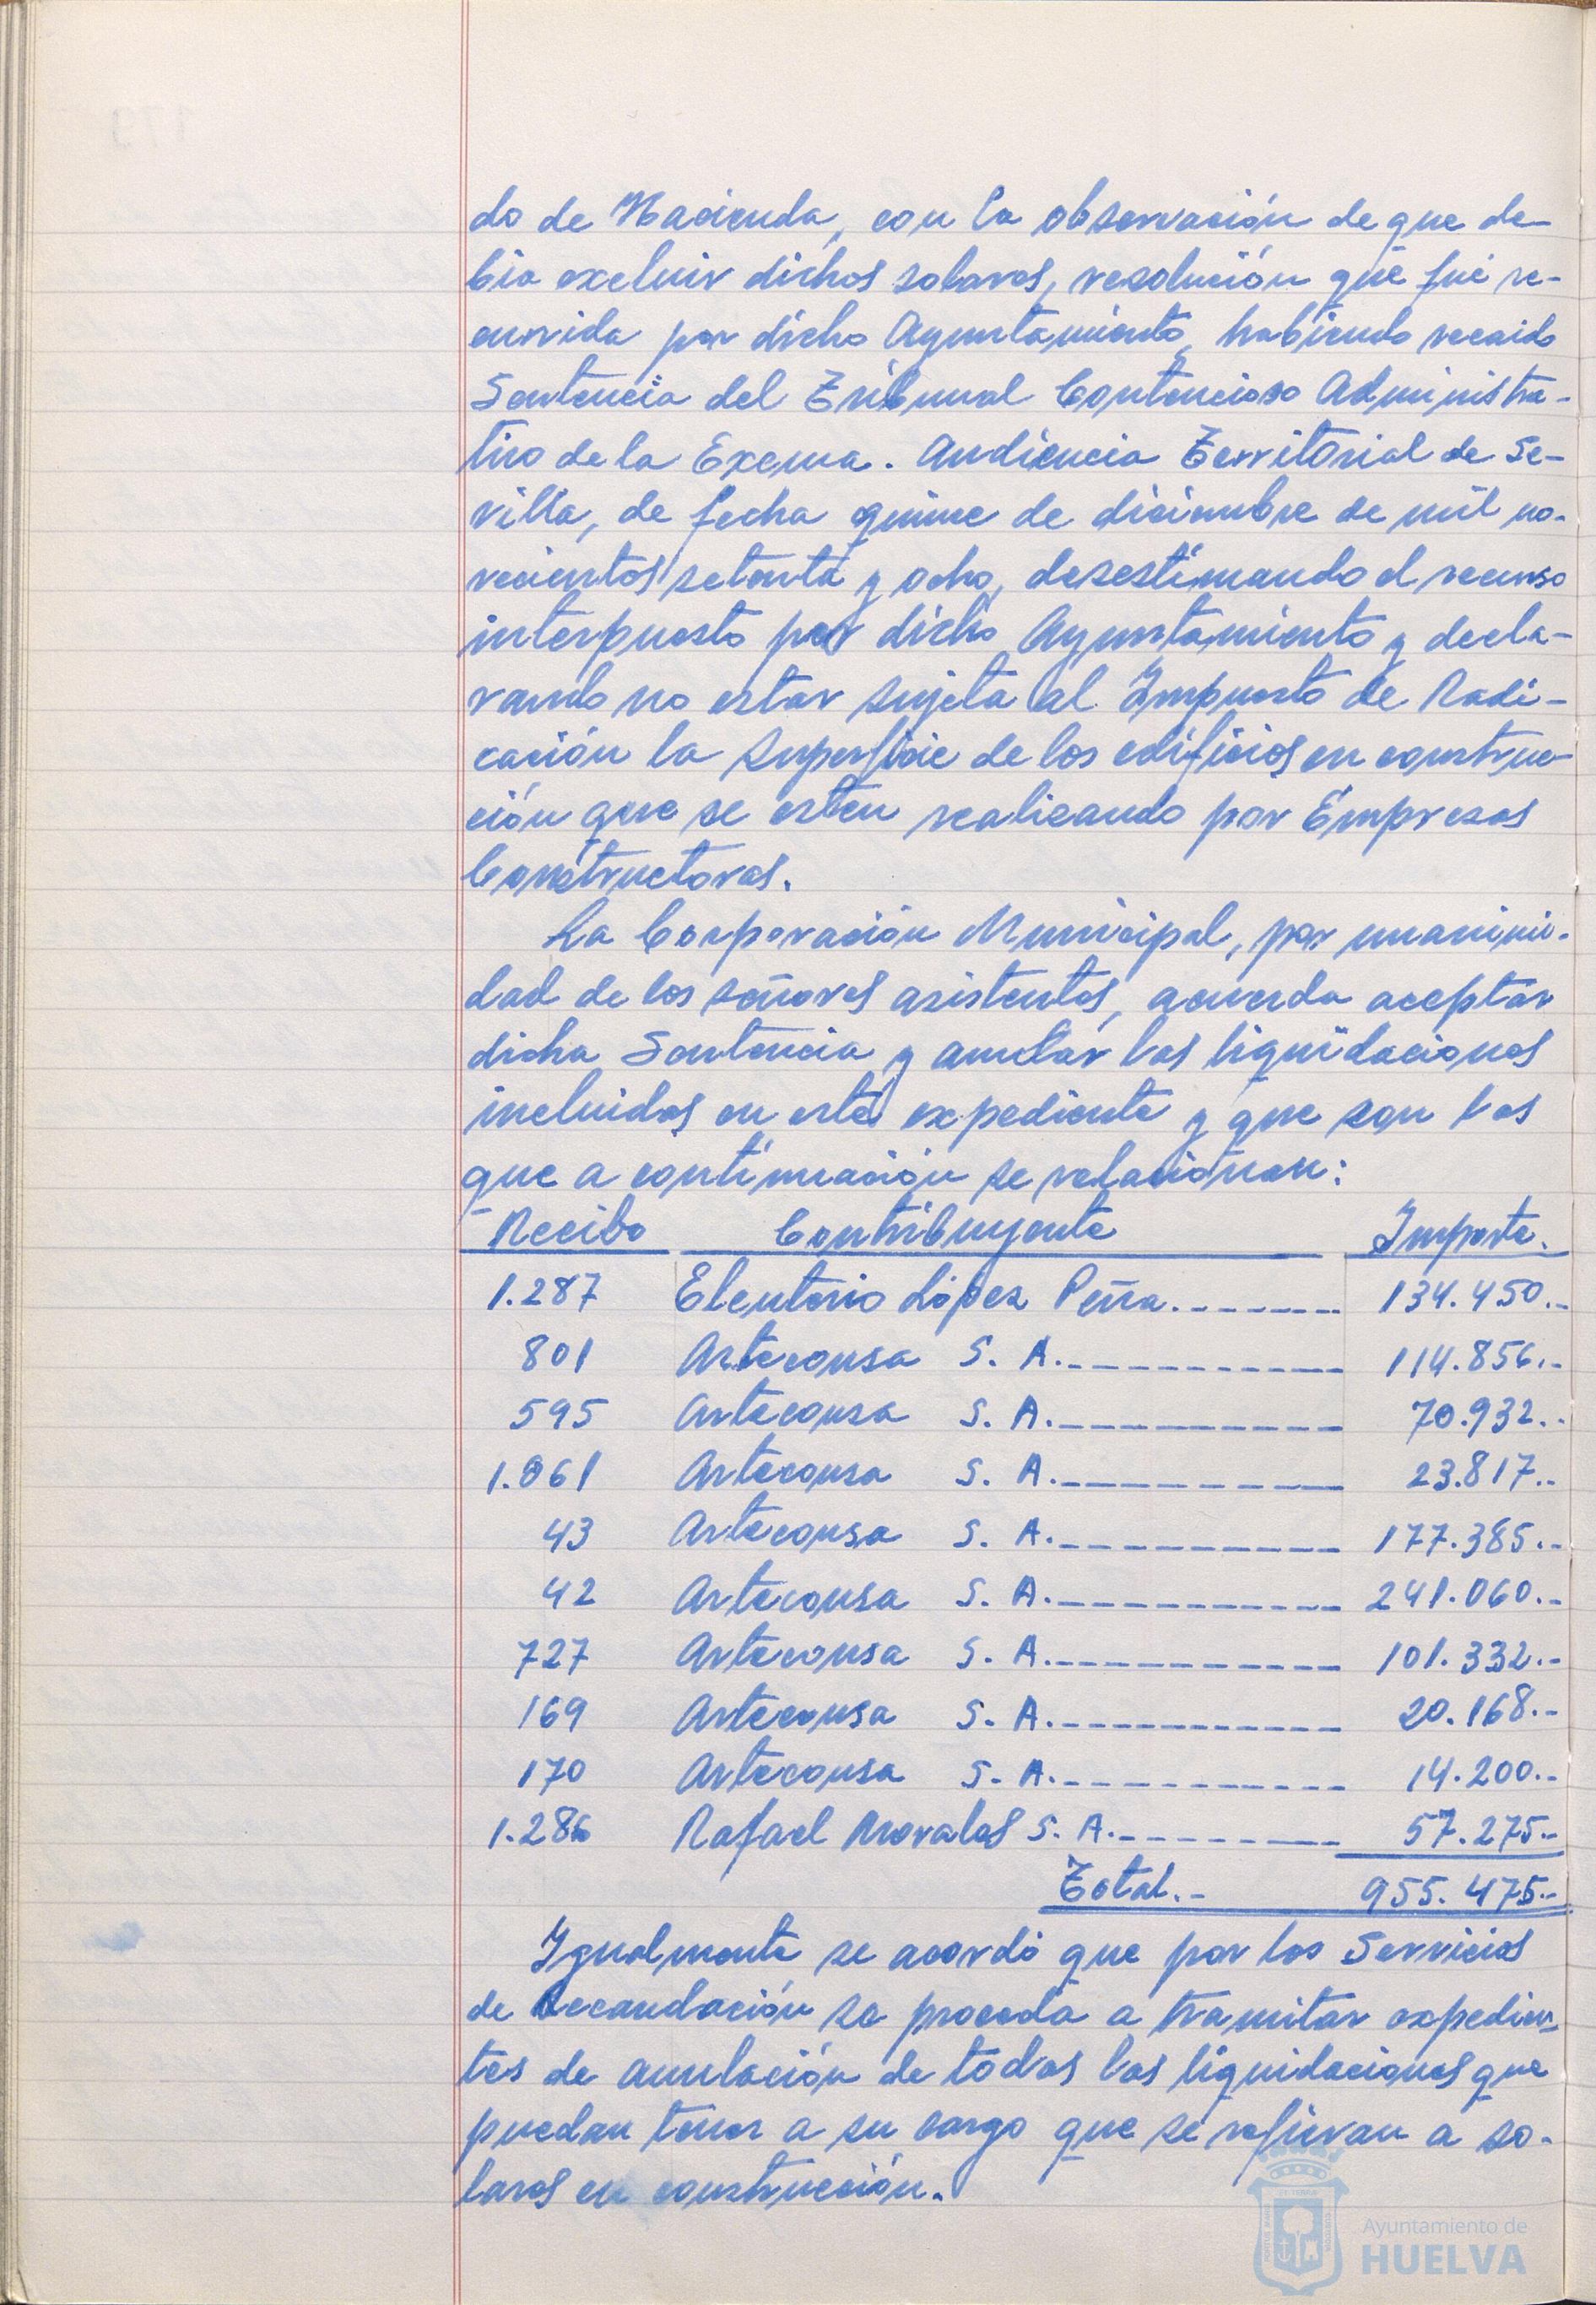 do de Hacienda, con la observación de que de-
bia excluir dichos solares, resolución que fué re-
currida por dicho Ayuntamiento, habiendo recaido
Sentencia del Tribunal Contencioso Administra-
tivo de la Excma. Audiencia Territorial de Se-
villa, de fecha quince de diciembre de mil no-
vecientos setenta y ocho, desestimando el recurso
interpuesto por dicho Ayuntamiento y decla-
rando no estar sujeta al Impuesto de Radi-
cación la superficie de los edificios en construc-
ción que se esten realizando por Empresas
Constructoras.
La Corporación Municipal, por unanimi-
dad de los señores asistentes, acuerda aceptar
dicha Sentencia y anular las liquidaciones
incluidas en este expediente y que son las
que a continuación se relacionan:
Recibo Contribuyente Importe.
1.287 Eleuterio López Peña.-------- 134.450.-
801 Artecousa S. A.----------- 114.856.-
595 Artecousa S. A.----------- 70.932.-
1.061 Artecousa S. A.----------- 23.817.-
43 Artecousa S. A.----------- 177.385.-
42 Artecousa S. A.----------- 241.060.-
727 Artecousa S. A.----------- 101.332.-
169 Artecousa S. A.----------- 20.168.-
170 Artecousa S. A.----------- 14.200.-
1.286 Rafael Morales S. A.-------- 57.275.-
Total.- 955.475.-
Igualmente se acordó que por los Servicios
de Recaudación se proceda a tramitar expedien-
tes de anulación de todas las liquidaciones que
puedan tener a su cargo que se refieran a so-
lares en construcción.
Ayuntamiento de
HUELVA